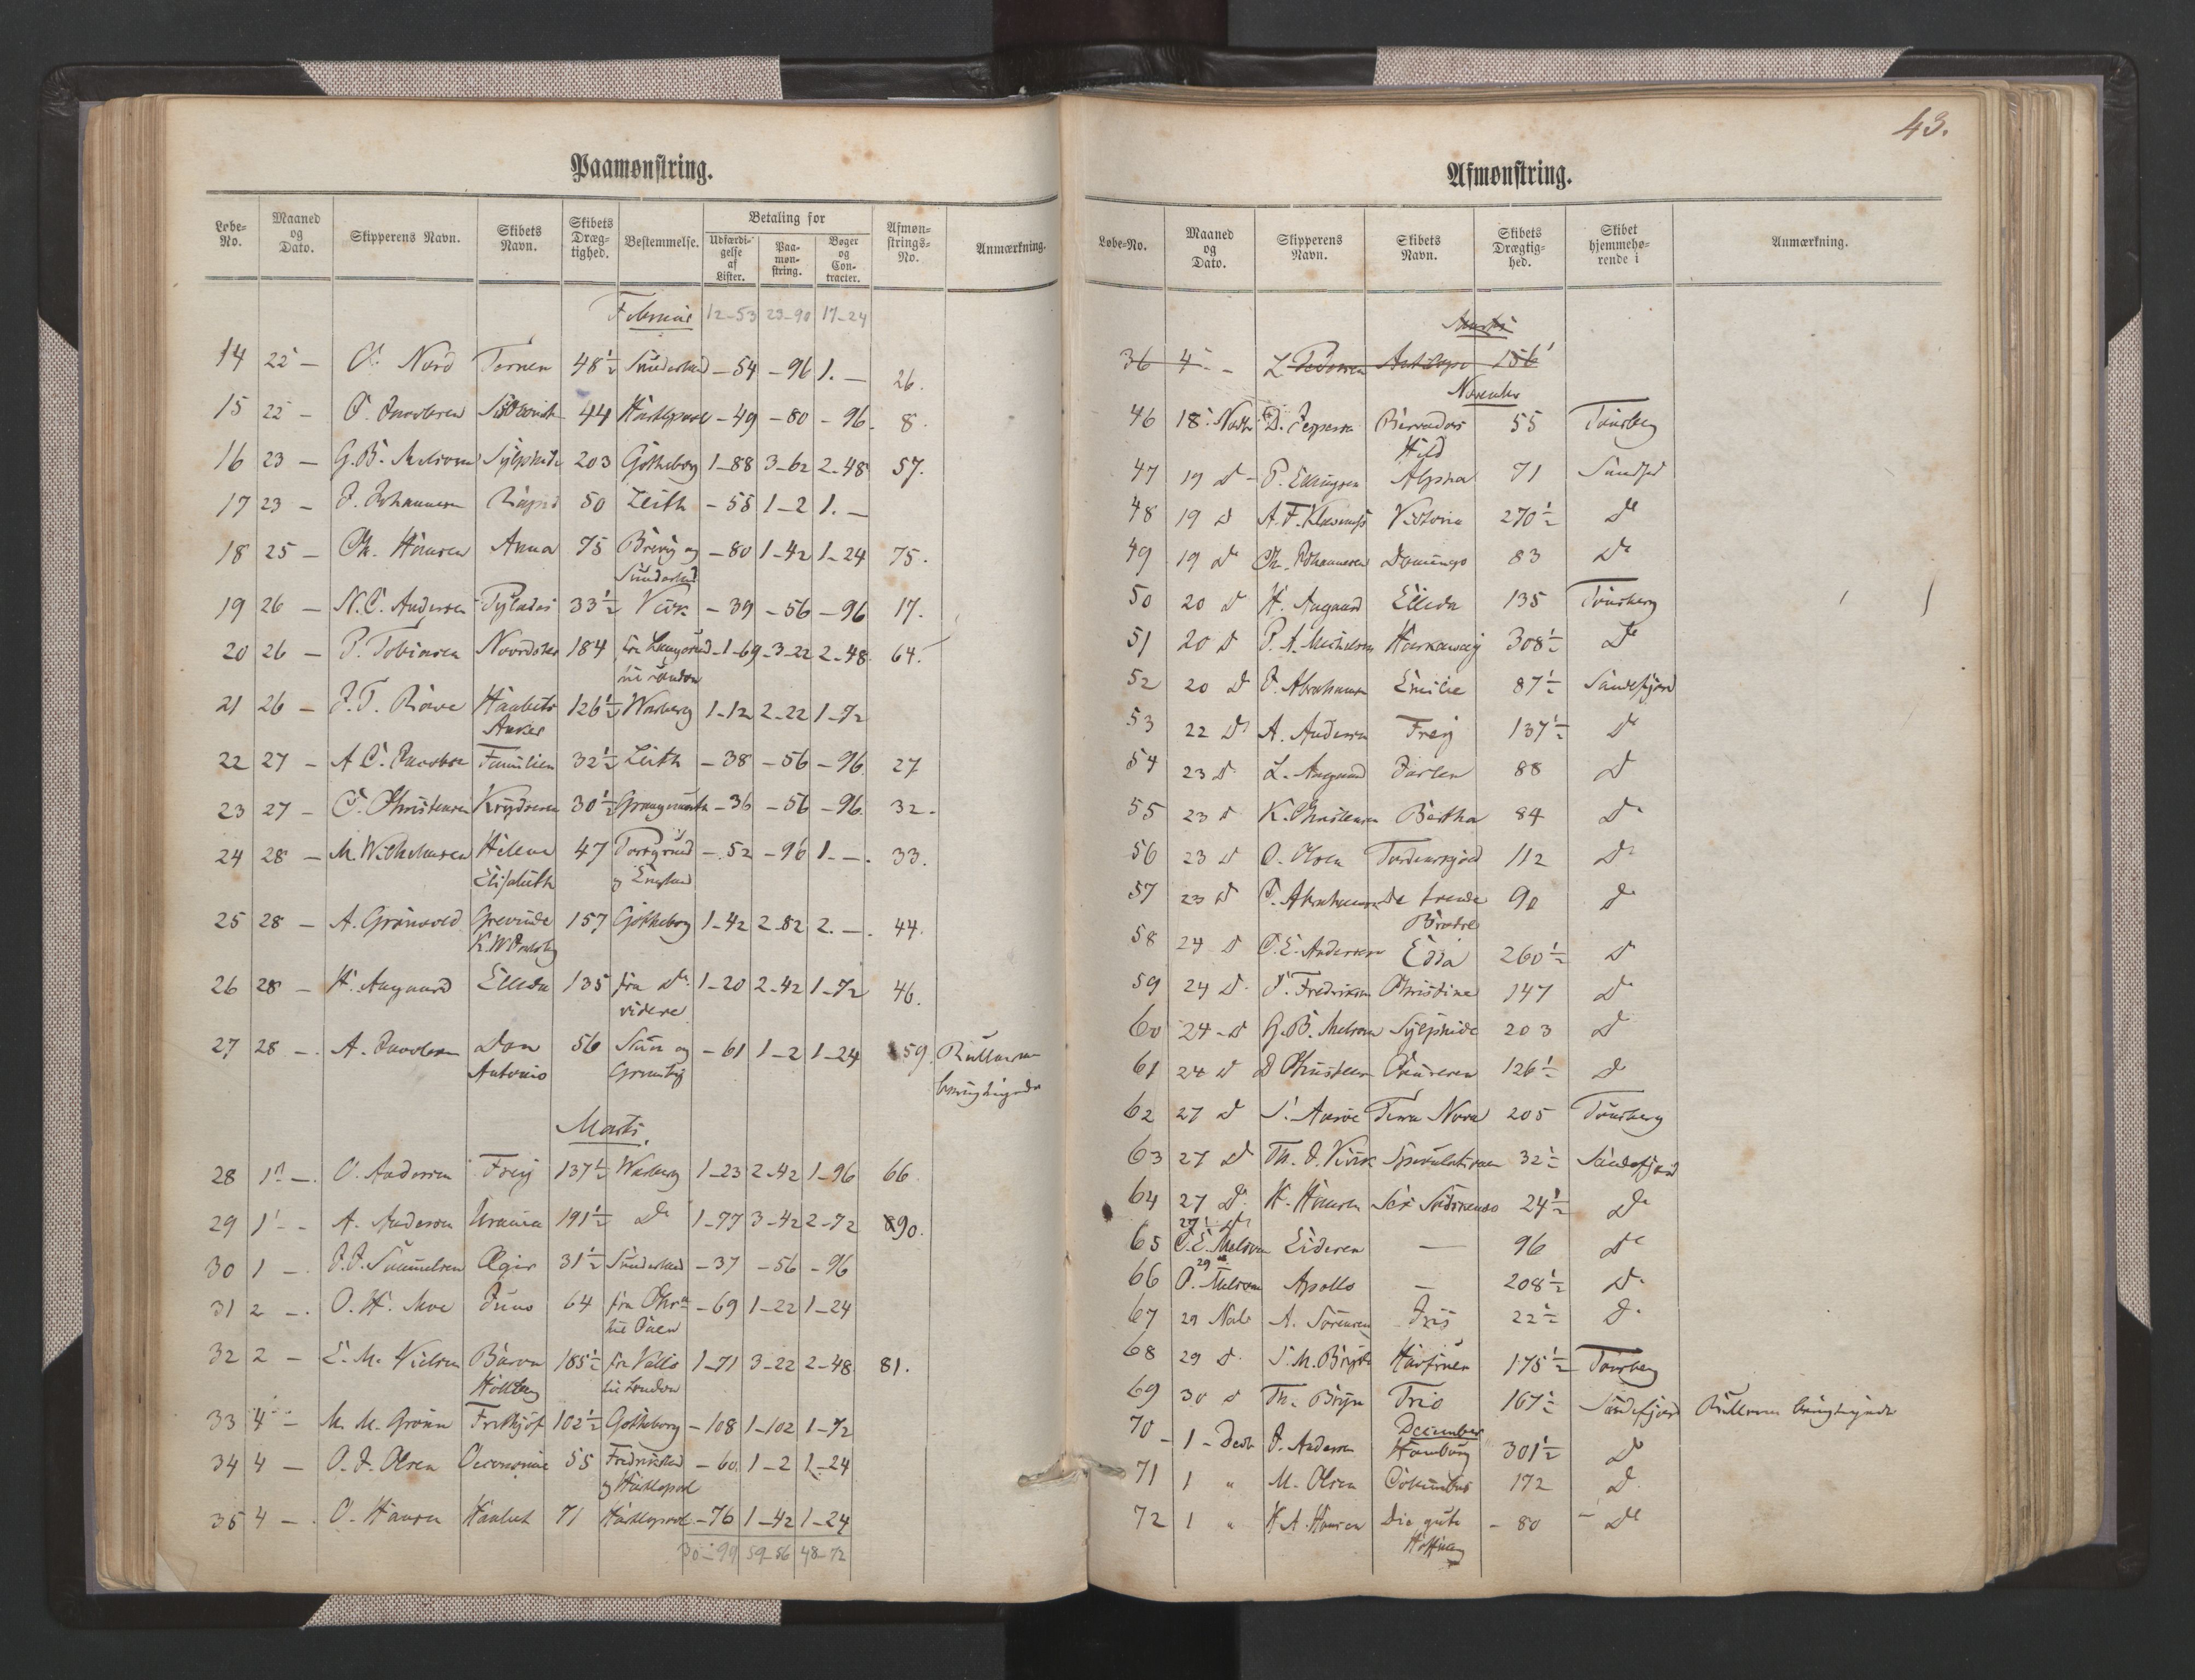 43.
Paamønstring.
Løbe-No. Maaned og Dato. Skipperens Navn. Skibets Navn. Skibets Drægtighed. Bestemmelse. Betaling for Udfærdigelse af Lister. Paamønstring. Bøger og Contracter. Afmønstrings-No. Anmærkning.
Februar 12-53 23-90 17-24
14 22 — O. Nord Ternen 48½ Sunderland - 54 - 96 1. — 26.
15 22 — 44 Hartlepool - 49 - 80 - 96. 8.
16 23 — G. B. Melsom Sylphide 203 Gøtheborg 1-88 3-62 2-48 57.
17 23 — J. Johannesen Rapid 50 Leith - 55 1-2 1. —
18 25 — Chr. Hansen Anna 75 Brevig og - 80 1-42 1-24 75.
Sunderland
19 26 — N. C. Andersen Pylades 33½ - 39 - 56 - 96 17.
20 26 — P. Tobiasen 184 fra Langesund 1-69 3-22 2-48. 64.
til London
21 26 — Haabets 126½ Warberg 1-12 2-22 1-72
Anker
22 27 — A C. Jacobsen Familien 32½ Leith - 38 - 56 - 96 27
23 27 — C. Christensen Krydseren 30½ Grangemouth - 36 - 56 - 96. 32.
24 28 — M. Wilhelmsen Helene 47 Porsgrund - 52 - 96 1. —. 33.
Elisabeth og England
25 28 — A. Grønvold Grevinde 157 Gøtheborg 1-42 2-82 2. —. 44.
26 28 — H. Aagaard Elleda 135 fra Do 1-20 2-42 1-72 46.
videre
27 28 —. A. Jacobsen Don 56 - 61 1-2 1-24 59. Rullerne
Antonio Grimsby
Marts.
28 1 —. O. Andersen Freij 137½ Warberg 1-23 2-42 1-96 66
29 1 - - A. Andersen Urania 191½ Do 1-77 3-42 2-72 90.
30 1 — J. J. Samuelsen Ægir 31½ Sunderland - 37 - 56 - 96
31 2 —. O. H. Moe Juno 64 fra Chra - 69 1-22 1-24
32 2 — E. M. Nielsen 185½ fra Vallø 1-71 3-22 2-48 81.
til London
33 4 — M. M. Grønn Frithjof 102½ Gøtheborg - 108 1-102 1-72
34 4 — O. J. Olsen Oeconomie 55 Fredrikstad - 60 1-2 1-24
og Hartlepool
35 4 —. O. Hansen Haabet 71 Hartlepool - 76 1-42 1-24
30-99 59-56 48-72
Afmønstring.
Løbe-No. Maaned og Dato. Skipperens Navn. Skibets Navn. Skibets Drægtighed. Skibet hjemmehørende i Anmærkning.
Marts
36 4 - - L Pedersen 156
November
46 18. Novbr D. Jespersen 55 Tønsberg
47 19 D - P. Ellingsen Alpha 71 Sandfjd
48 19 D Victoria 270½ Do
49 19 Do Chr. Johannesen Domingo 83 Do
50 20 D H. Aagaard Elleda 135 Tønsberg
51 20 D P. A. Michelsen 308½ Do
52 20 D J. Abrahamsen Emilie 87½ Sandefjord
53 22 D A. Andersen Freij 137½ D
54 23 D L. Aagaard Jarlen 88 D
55 23 D K. Christensen Bertha 84 Do
56 23 D O. Olsen Tordenskjold 112 Do
57 23 D Abrahamsen De trende 90 Do
Brødre
58 24 D C. E. Andersen Edda 260½ D
59 24 D. Fredriksen Christine 147 Do
60 24 - D G. B. Melsom Sylphide 203 D
61 24 D D Christensen 126½ D
62 27 D Terra Nova 205 Tønsberg
63 27 D Th. J. Virik Speculationen 32½ Sandefjord
64 27 D. H. Hansen 24½ Do
65 27 D C. E. Melsom Eideren — 96 Do
66 29 O. Melsom Apollo — 208½ Do
67 29 Novb A. Sørensen Iris 22½ Do
68 29 D. Havfruen 175½ Tønsberg
69 30 D Th. Bryn Trio 167½ Sandefjord Rullerne
December
70 - 1 - Decb J. Andersen Hamburg 301½ Do
71 1 " M. Olsen Columbus 172 D
72 1 " H A. Hansen Die gute - 80 - Do
Hoffnung